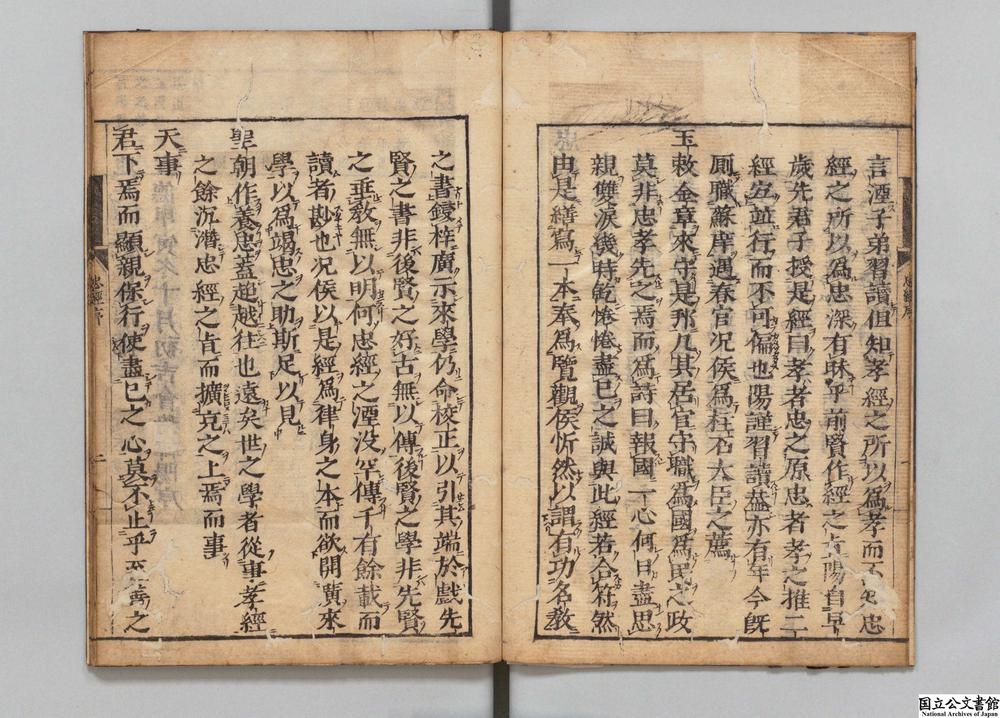 言湮子弟習讀但知孝經之所以爲孝而不知忠
經之所以爲忠深有昧乎前賢作經之旨陽自早
歲先君子授是經曰孝者忠之原忠者孝之推二
經宐並行而不可偏也陽謹習讀葢亦有年今旣
厠職蘇庠遇春官况侯爲柱石大臣之薦
玉敕金章來守是邦凡其居官守職爲國爲民之政
莫非忠孝先之焉而爲詩曰報國一心何日盡思
親雙淚幾時乾惓惓盡已之誠與此經若合符然
由是繕寫一本奉爲覽觀侯忻然以謂有功名敎
之書鋟梓廣示來學仍命校正以引其端於戲先
賢之書非後賢之好古無以傳後賢之學非先賢
之垂敎無以明何忠經之湮没罕傳千有餘載而
讀者尠也况侯以是經爲律身之本而欲開廣來
學以爲竭忠之助斯足以見
聖朝作養忠藎超越往也遠矣世之學者從事孝經
之餘沉潛忠經之旨而擴充之上焉而事
天事
君下焉而顯親保行使盡已之心莫不止乎至善之
忠經序
一
忠經序
二
国立公文書館
National Archives of Japan